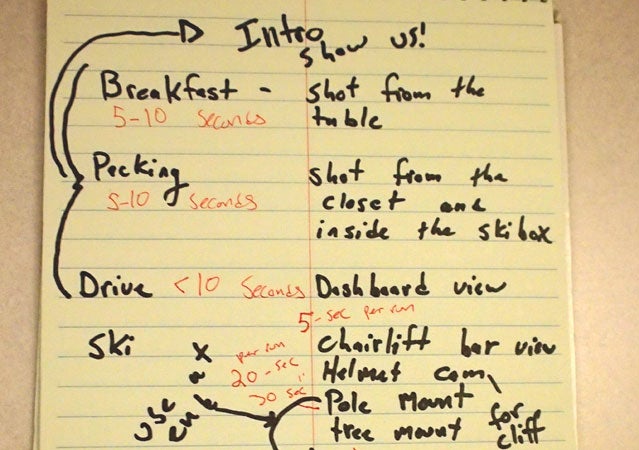 Intro
show us!
Breakfast - shot from the
5-10 seconds table
Packing shot from the
5-10 seconds closet and
inside the skibox
Drive <10 Seconds Dashboard view
5-sec per run
Ski x chairlift bar view
per run
20-sec Helmet cam
30 sec Pole Mount for
tree mount cliff